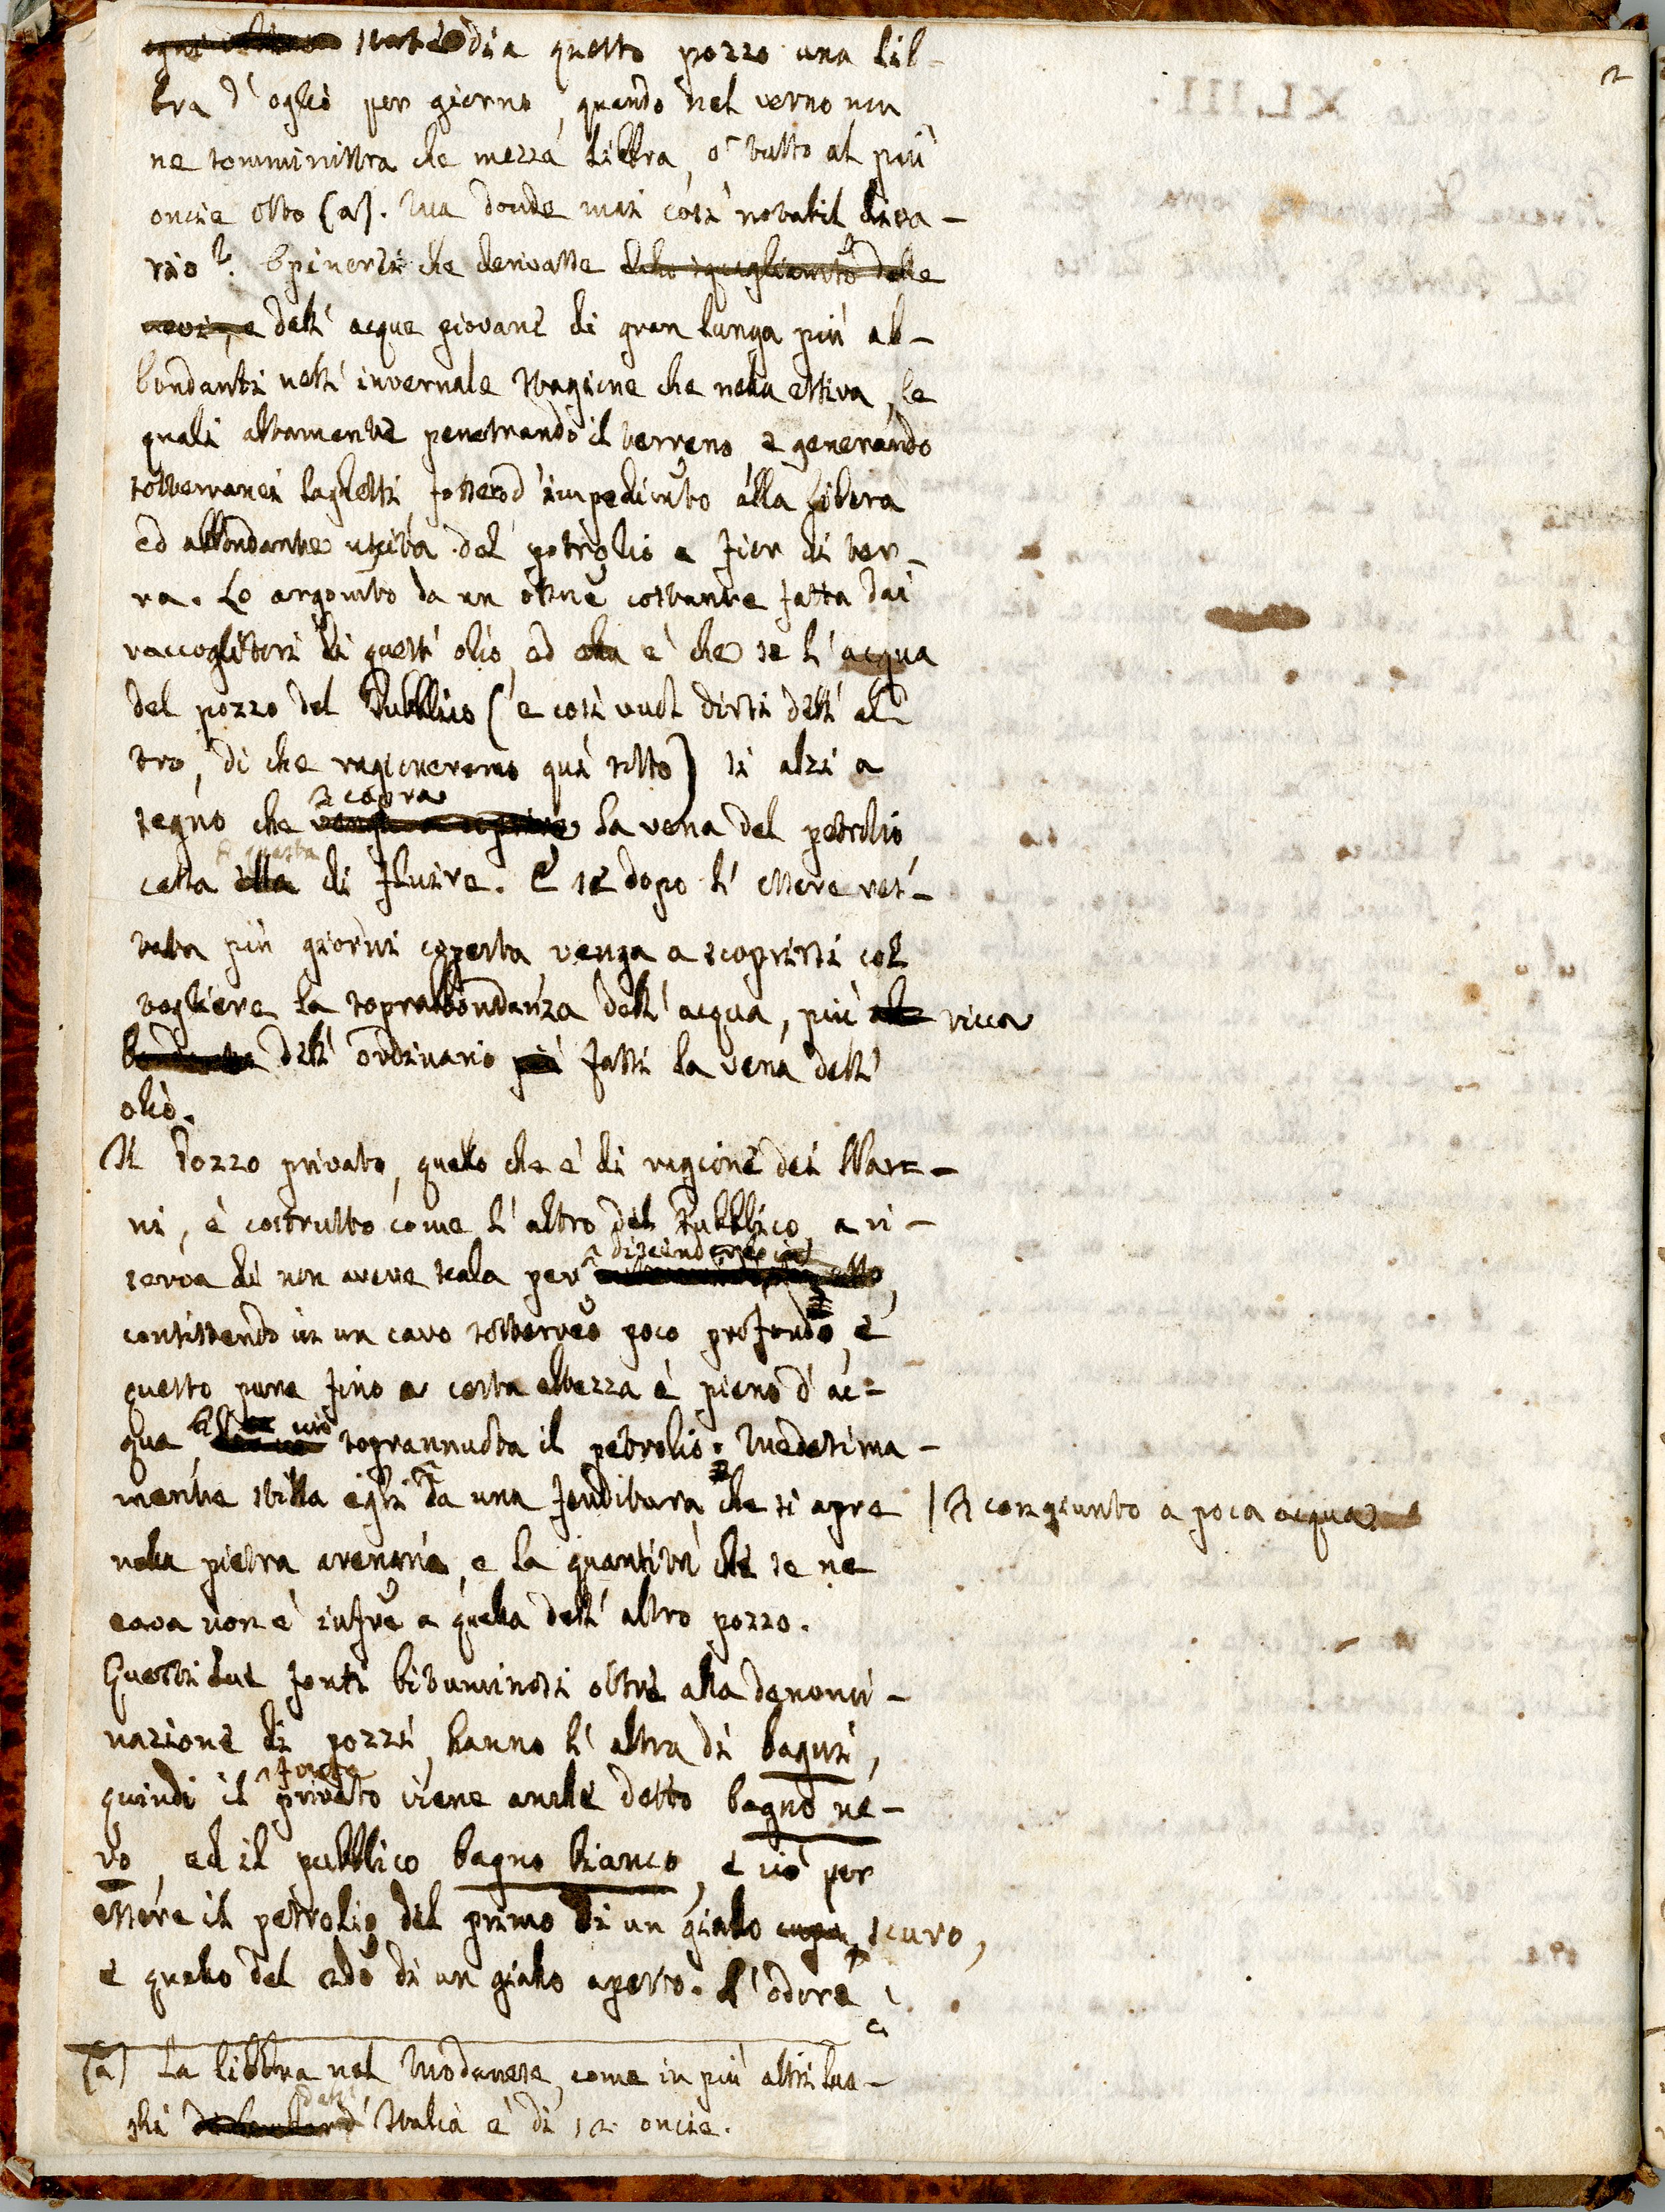 2
state dia questo pozzo una lib-
bra d'oglio per giorno, quando nel verno non
ne somministra che mezza libbra, o tutto al più
oncie otto (a). Ma donde mai così notabil diva-
rio? Opinerei che derivasse dello squagliamto delle
nevi, e dell'acque piovane di gran lunga più ab-
bondanti nell'invernale stagione che nella estiva, le
quali altamente penetrando il terreno, e generando
sotterranei laghetti, fossero d'impedimto alla libera
ed abbondante uscita del petrolio a fior di ter-
ra. Lo argomto da un osservne costante fatta dai
raccoglitori di quest'olio, ed ella è che se l'acqua
del pozzo del Pubblico (e così vuol dirsi dell'al-
tro, di che ragioneremo quì sotto) si alzi a
ricopra
segno che venga a coprire la vena del petrolio
questa
cessa ella di fluire. E se dopo l'essere res-
tata più giorni coperta, venga a scoprirsi col
togliere la soprabbondanza dell'acqua, più ab ricca
bondante dell'ordinario più fassi la vena dell'
olio.
Il Pozzo privato, quello che è di ragione dei Mari-
ni, è costrutto come l'altro del Pubblico, a ri-
discendervi
serva di non avere scala per
consistendo in un cavo sotterreo poco profondo, e
questo pure fino a certa altezza è pieno d'ac-
qua, soprannuota il petrolio. Medesima-
mente stilla egli da una fenditura che si apre / congiunto a poca acqua
nella pietra arenaria, e la quantità che se ne
cava non è infre a quella dell'altro pozzo.
Questi due fonti bituminosi oltre alla denomi-
nazione di pozzi, hanno l'altra di bagni,
fonte
quindi il privato viene anche detto bagno ne-
ro, ed il pubblico bagno bianco, e ciò per
essere il petrolio del primo di un giallo cupo scuro,
e quello del 2do di un giallo aperto. L'odore
è
(a) La libbra nel Modanese, come in più altri luo-
dell'
ghi di Lombard Italia è di 12 oncie.